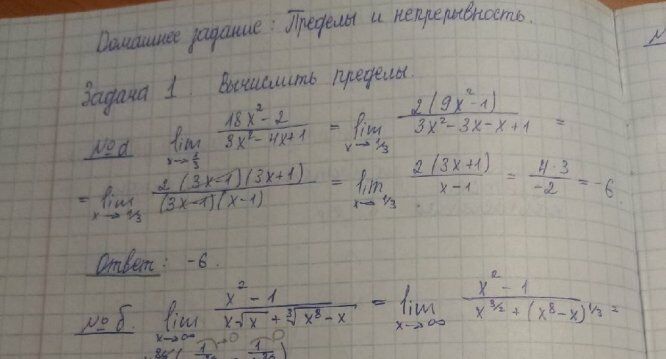 Домашнее задание: Пределы и непрерывность.
Задача 1. Вычислить пределы.
№ a lim x→1/3 (18x² - 2)/(3x² - 4x + 1) = lim x→1/3 2(9x² - 1)/(3x² - 3x - x + 1) =
= lim x→1/3 2(3x-1)(3x+1)/(3x-1)(x-1) = lim x→1/3 2(3x+1)/(x-1) = 4·3/-2 = -6
Ответ: -6.
№ б. lim x→∞ (x² - 1)/(x√x + ∛(x⁸ - x)) = lim x→∞ (x² - 1)/(x^3/2 + (x⁸ - x)^1/3) =